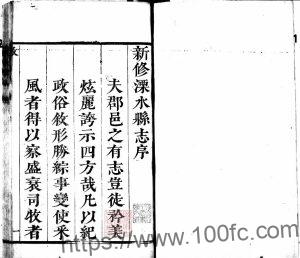 新修溧水縣志序
夫郡邑之有志豈徒矜美
炫麗誇示四方哉凡以紀
政俗敘形勝綜事變使采
風者得以察盛衰司牧者
https://www.100fc.com